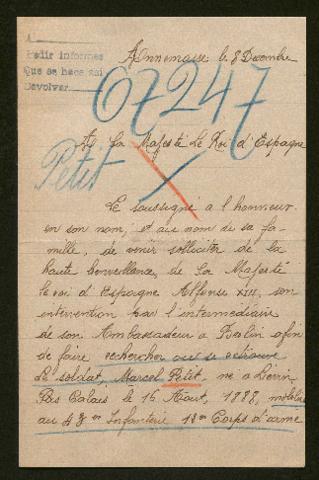 Pedir informes
Que se hace asi
Devolver
Annemasse le 8 Decembre
67247
A Sa Majesté Le Roi d'Espagne
Petit
Le soussigné a l'honneur
en son nom, et au nom de sa fa-
mille, de venir solliciter de la
haute bienveillance, de Sa Majesté
le roi d'Espagne Alfonse XIII, son
intervention par l'intermédiaire
de son Ambassadeur a Berlin afin
de faire rechercher ou se retrouve
Le soldat, Marcel Petit, né a
Pas Calais le 16 Aout, 1888, mobilisé
au Infanterie Corps d'armé